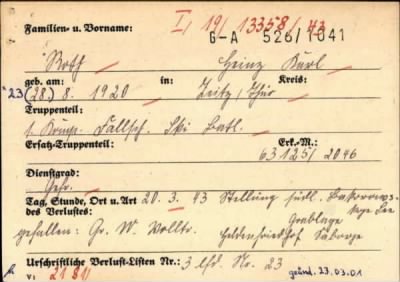 Familien- u. Vorname: I, 19/ 13358/43
G-A 526/1041
Roth Heinz Karl
geb. am: in: Kreis:
23 (28.) 8. 1920 Zeitz/Thür
Truppenteil:
1. Komp. Fallsch. Ski Batl.
Ersatz-Truppenteil: Erk.-M.:
63125/2046
Dienstgrad:
Gefr.
Tag, Stunde, Ort u. Art 20. 3. 43 Stellung südl.
des Verlustes: See
gefallen: Gr. W. Volltr. Grablage
Heldenfriedhof Saborje
Urschriftliche Verlust-Listen Nr.: 3 lfd. Nr. 23
V: 2181 geänd. 23.03.01